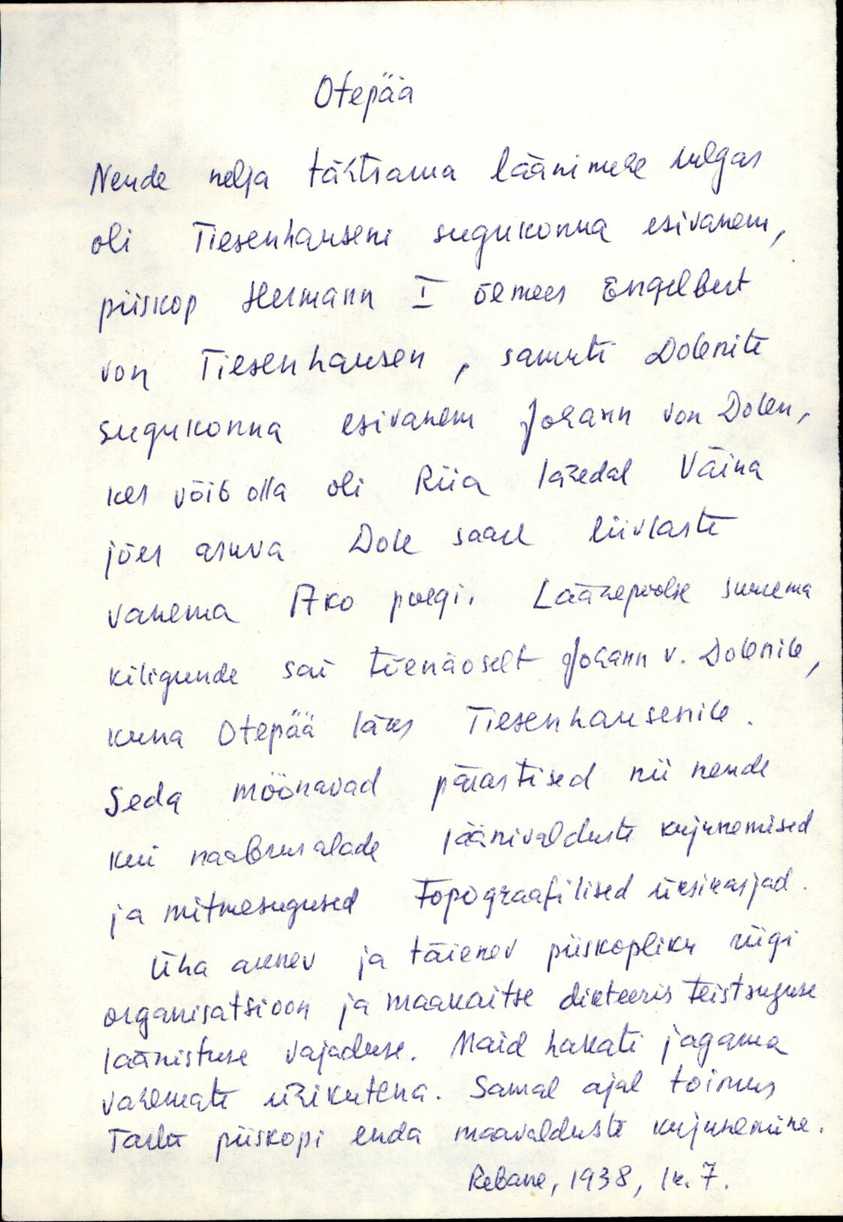 Otepää
Nende nelja tähtsama läänimehe hulgas
oli Tiesenhauseni sugukonna esivanem,
piiskop Hermann I õemees Engelbert
von Tiesenhausen, samuti Dolenite
sugukonna esivanem Johann von Dolen,
kes võib olla oli Riia lähedal Väina
jões asuva Dole saare liivlaste
vanema Ako poegi. Läänepoolse suurema
kiligunde sai tõenäoselt Johann v. Dolenile,
kuna Otepää läks Tiesenhausenile.
Seda möönavad pärastised nii nende
kui naabrusalade läänivalduste kujunemised
ja mitmesugused topograafilised üksikasjad.
Üha arenev ja täienev piiskopliku riigi
organisatsioon ja maakaitse dikteeris teistsuguse
läänistuse vajaduse. Maid hakati jagama
vähemate üksikutena. Samal ajal toimus
Tartu piiskopi enda maavalduste kujunemine.
Rebane, 1938, lk. 7.